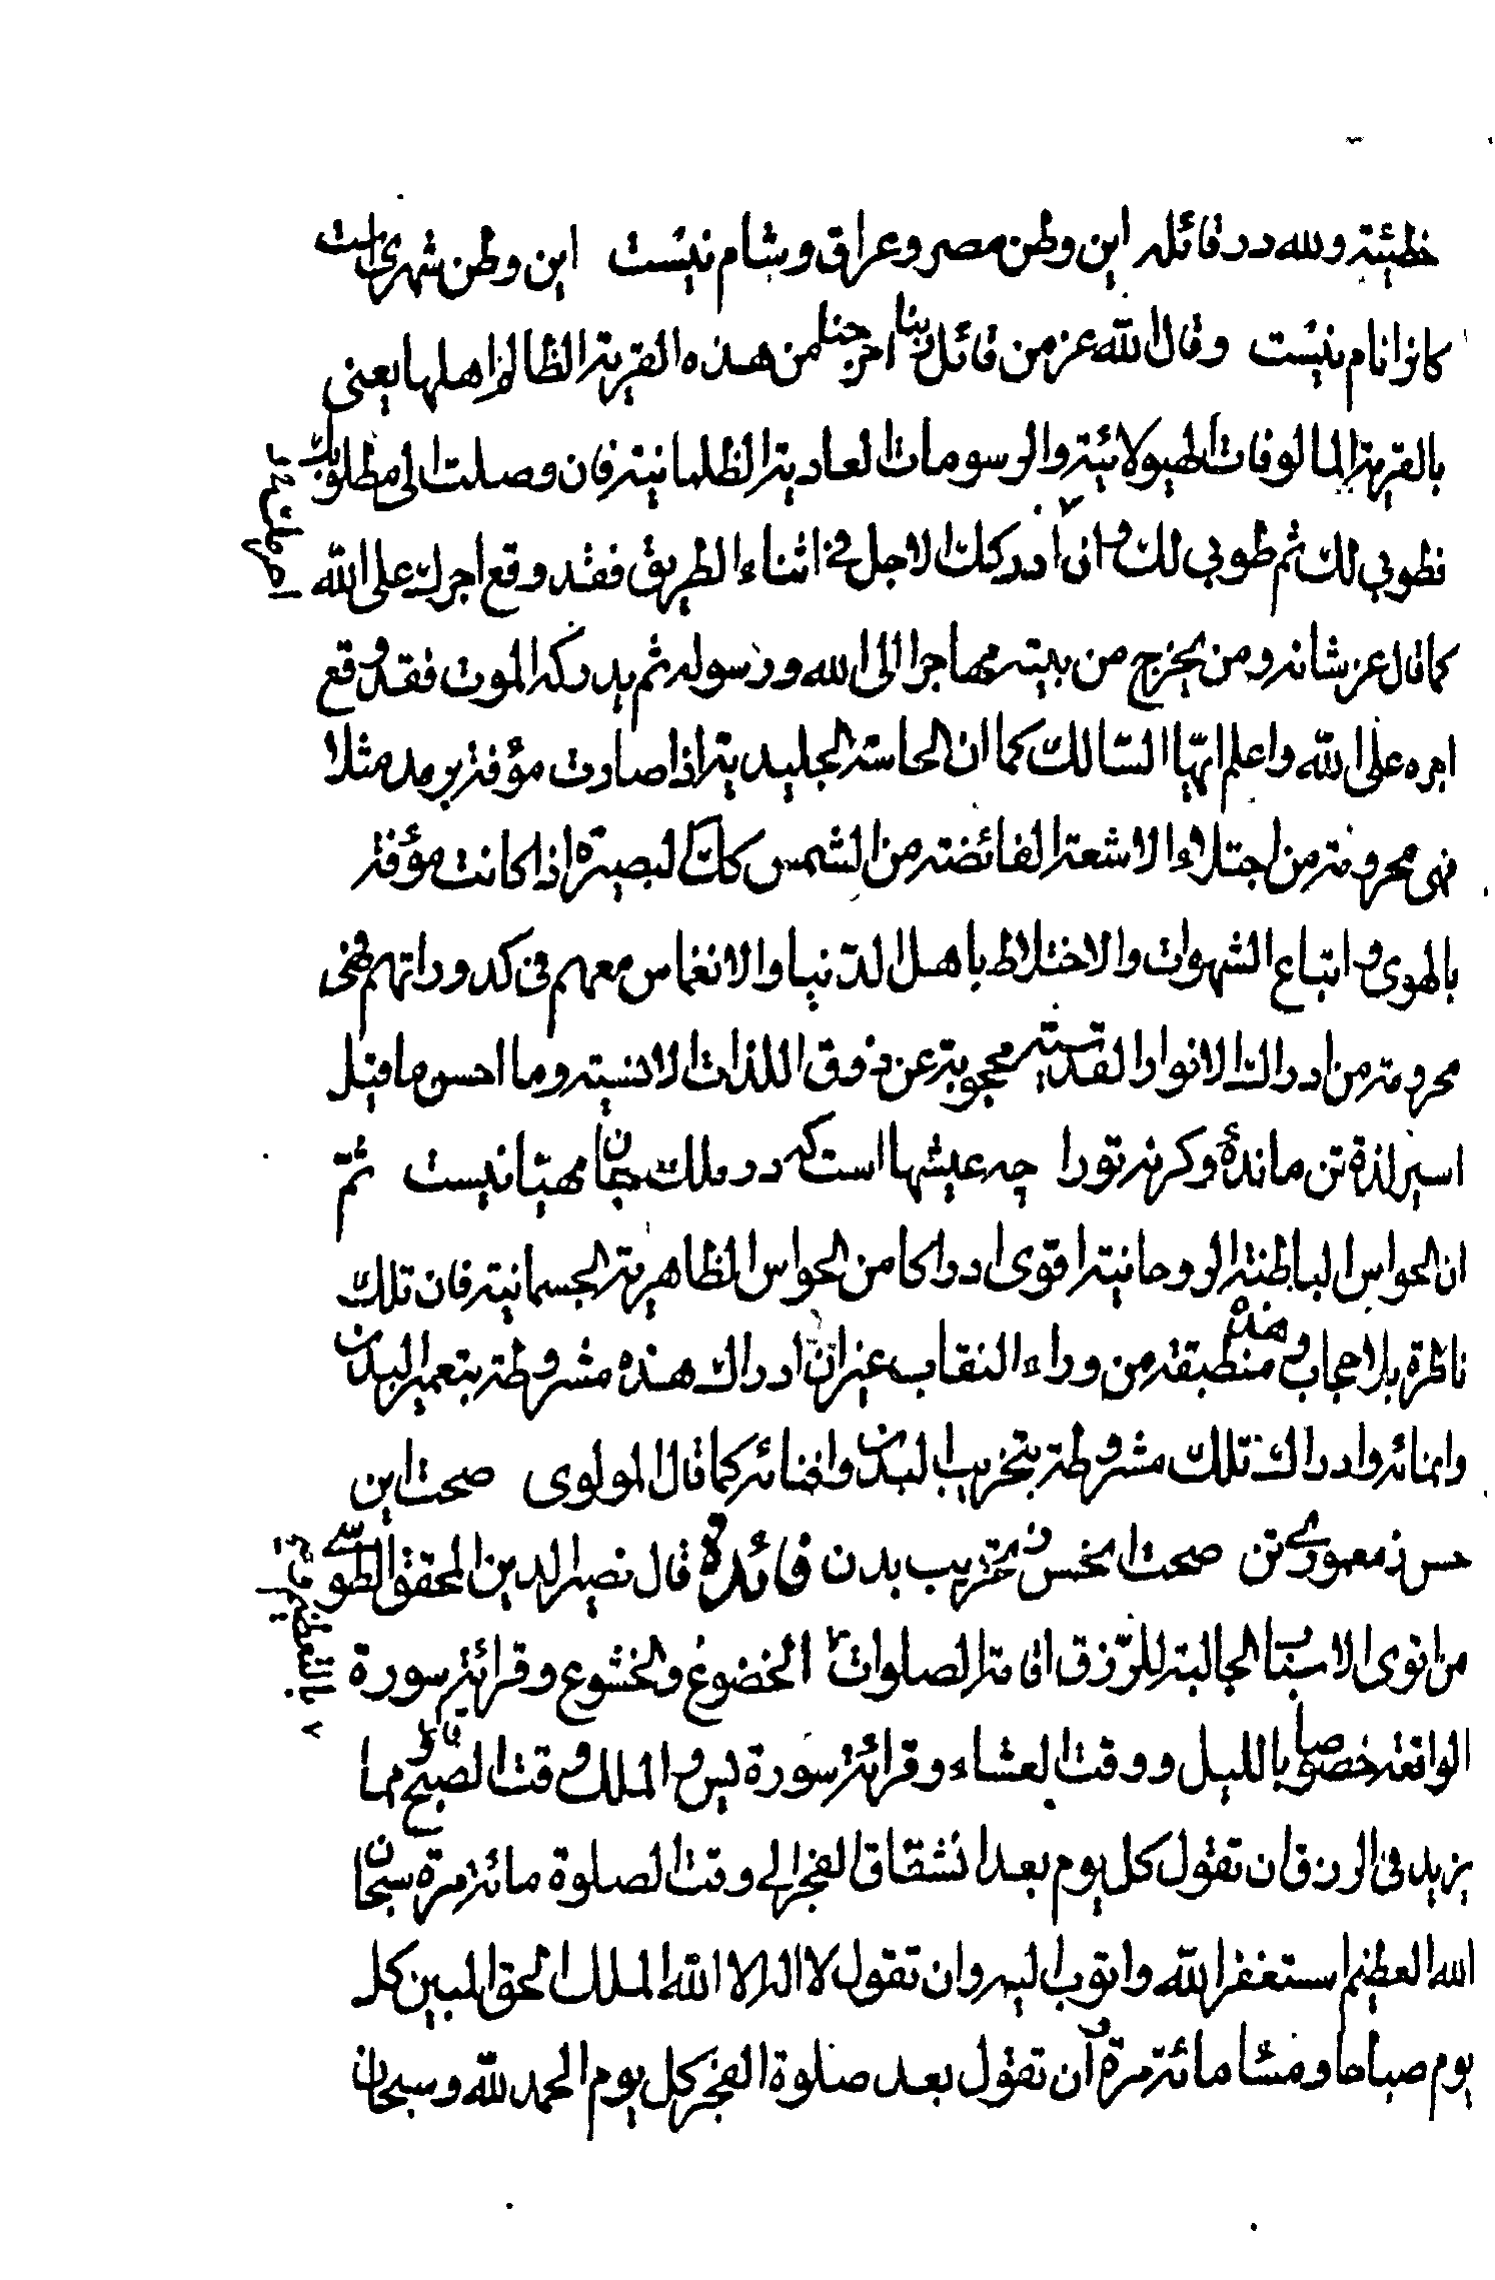 خطيئة ولله در قائله اين وطن مصر وعراق وشام نيست اين وطن شهريست
كانرا نام نيست وقال الله عز من قائل ربنا اخرجنا من هذه القرية الظالم اهلها يعنى
بالقرية المالوفات الهيولائية والرسومات العادية الظلمانية فان وصلت الى مطلوبك
فطوبى لك ثم طوبى لك وان ادركك الاجل فى اثناء الطريق فقد وقع اجرك على الله
كما قال عز شانه ومن يخرج من بيته مهاجرا الى الله ورسوله ثم يدركه الموت فقد وقع
اجره على الله واعلم ايّها السّالك كما ان الحاسة الجليدية اذا صارت مؤفة برمد مثلا
فهى محرومة من اجتلاء الاشعة الفائضة من الشمس كك البصيرة اذا كانت مؤفة
بالهوى و اتباع الشهوات والاختلاط باهل الدّنيا والانغماس معهم فى كدوراتهم فهى
محرومة من ادراك الانوار القدسيّة محجوبة عن ذوق اللذات الانسية وما احسن ما قيل
اسير لذة تن ماندهٔ وكرنه تورا چه عيشها است كه در ملك جان مهيّا نيست ثمّ
ان الحواس الباطنة الروحانية اقوى ادراكا من الحواس الظاهرية الجسمانية فان تلك
ناظرة بلا حجاب وهذه منطبقة من وراء النقاب غير انّ ادراك هذه مشروطة بتعمير البدن
وانمائه وادراك تلك مشروطة بتخريب البدن وافنائه كما قال المولوى صحت اين
حس ز معمورى تن صحت انحس ز تخريب بدن فائدة قال نصير الدين المحقق الطّوسى
من اقوى الاسباب الجالبة للرّزق اقامة الصلوات الخضوع والخشوع وقرائة سورة
الواقعة خصوصا بالليل ووقت العشاء وقرائة سورة يس و الملك وقت الصبح ومما
يزيد فى الرزق ان تقول كل يوم بعد انشقاق الفجر الى وقت الصلوة مائة مرة سبحان
الله العظيم استغفر الله واتوب اليه وان تقول لا اله الا الله الملك الحق المبين كل
يوم صباحا ومسا مائة مرة وان تقول بعد صلوة الفجر كل يوم الحمد لله وسبحان